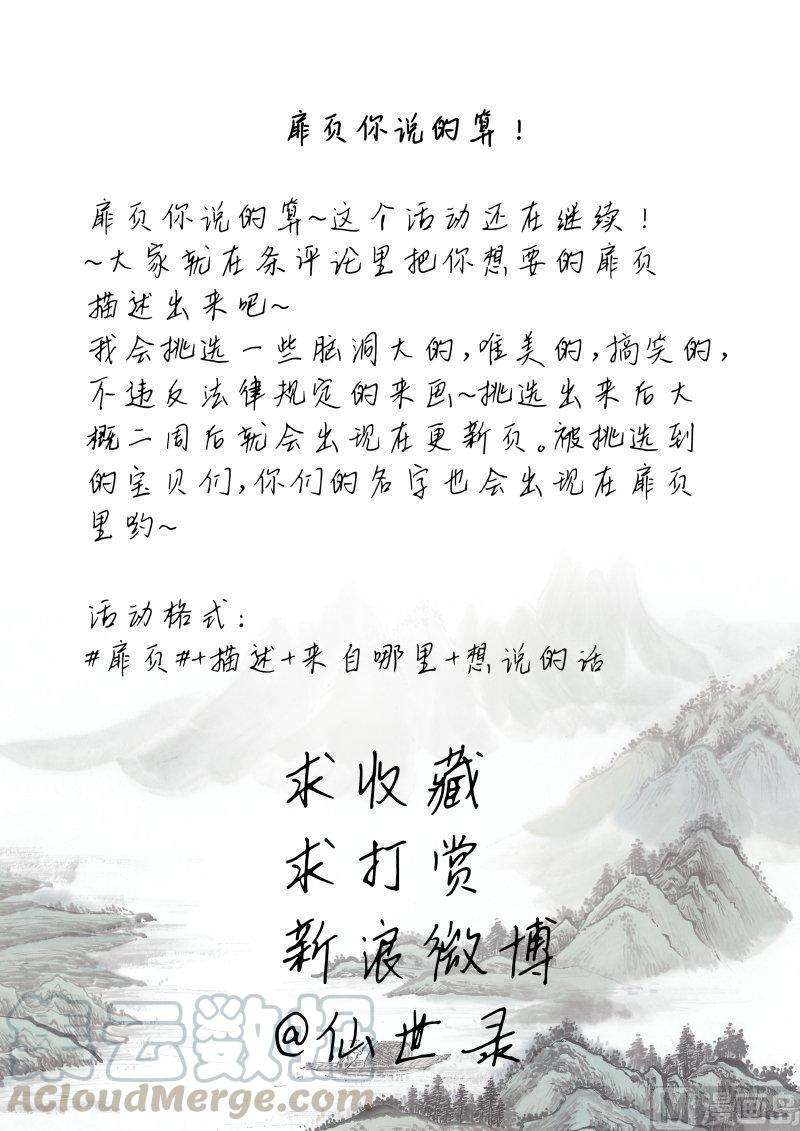 扉页你说的算！
扉页你说的算~这个活动还在继续！
~大家就在条评论里把你想要的扉页
描述出来吧~
我会挑选一些脑洞大的,唯美的,搞笑的,
不违反法律规定的来画~挑选出来后大
概二周后就会出现在更新页。被挑选到
的宝贝们,你们的名字也会出现在扉页
里哟~
活动格式：
#扉页#+描述+来自哪里+想说的话
求收藏
求打赏
新浪微博
@仙世录
云数据
ACloudMerge.com
漫画岛